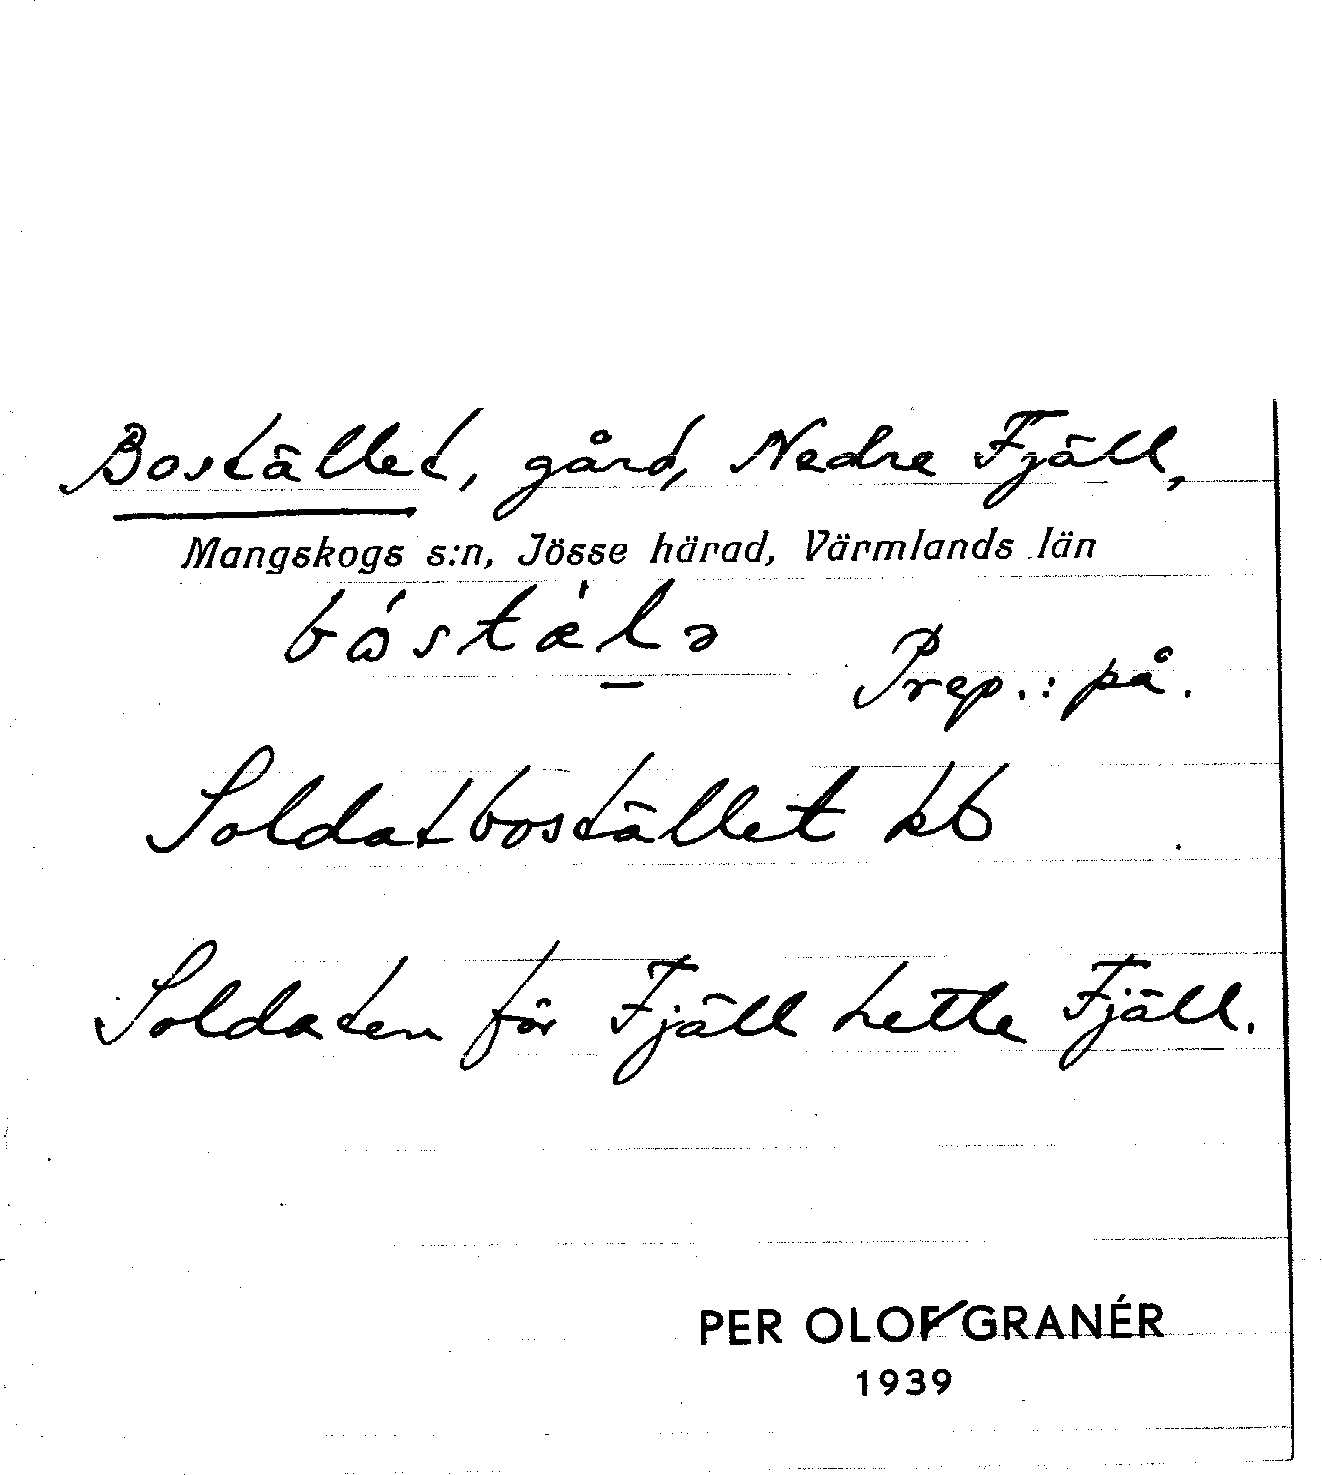 Bostället, gård, Nedre Fjäll,
Mangskogs s:n, Jösse härad, Värmlands län
bóstæ̀lə
Prep.: på.
Soldatbostället kb
Soldaten för Fjäll hette Fjäll.
PER OLOF GRANÉR
1939